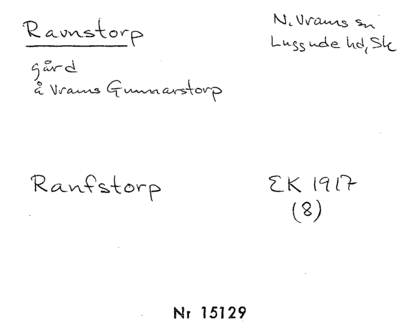 Ravnstorp
N. Vrams sn
Luggude hd, Sk
gård
å Vrams Gunnarstorp
Ranfstorp
EK 1917
(8)
Nr 15129